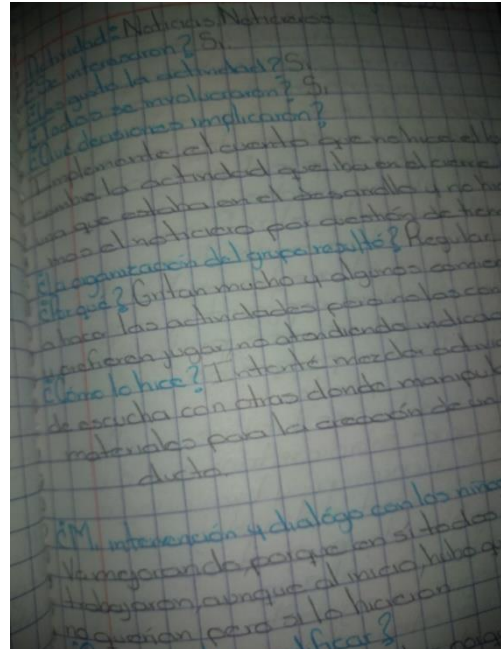 Actividad: Noticias, Noticiero
¿Se interesaron? Si
¿Les gustó la actividad? Si
¿Todos se involucraron? Si
¿Qué decisiones implicaron?
Implementé el cuento que no hice
cambie la actividad que iba en el cierre
una que estaba en el desarrollo y no
mos el noticiero por cuestión de
¿La organización del grupo resultó? Regular
¿Por qué? Gritan mucho y algunos
a hacer las actividades pero no las
y prefieren jugar, no atendiendo
¿Cómo lo hice? Intenté mezclar
de escucha con otras donde
materiales para la creación de un
ducto.
¿M. intervención y dialógo con los niños
Va mejorando, porque en sí todos
trabajaron, aunque al inicio, hubo
no querían pero si lo hicieron